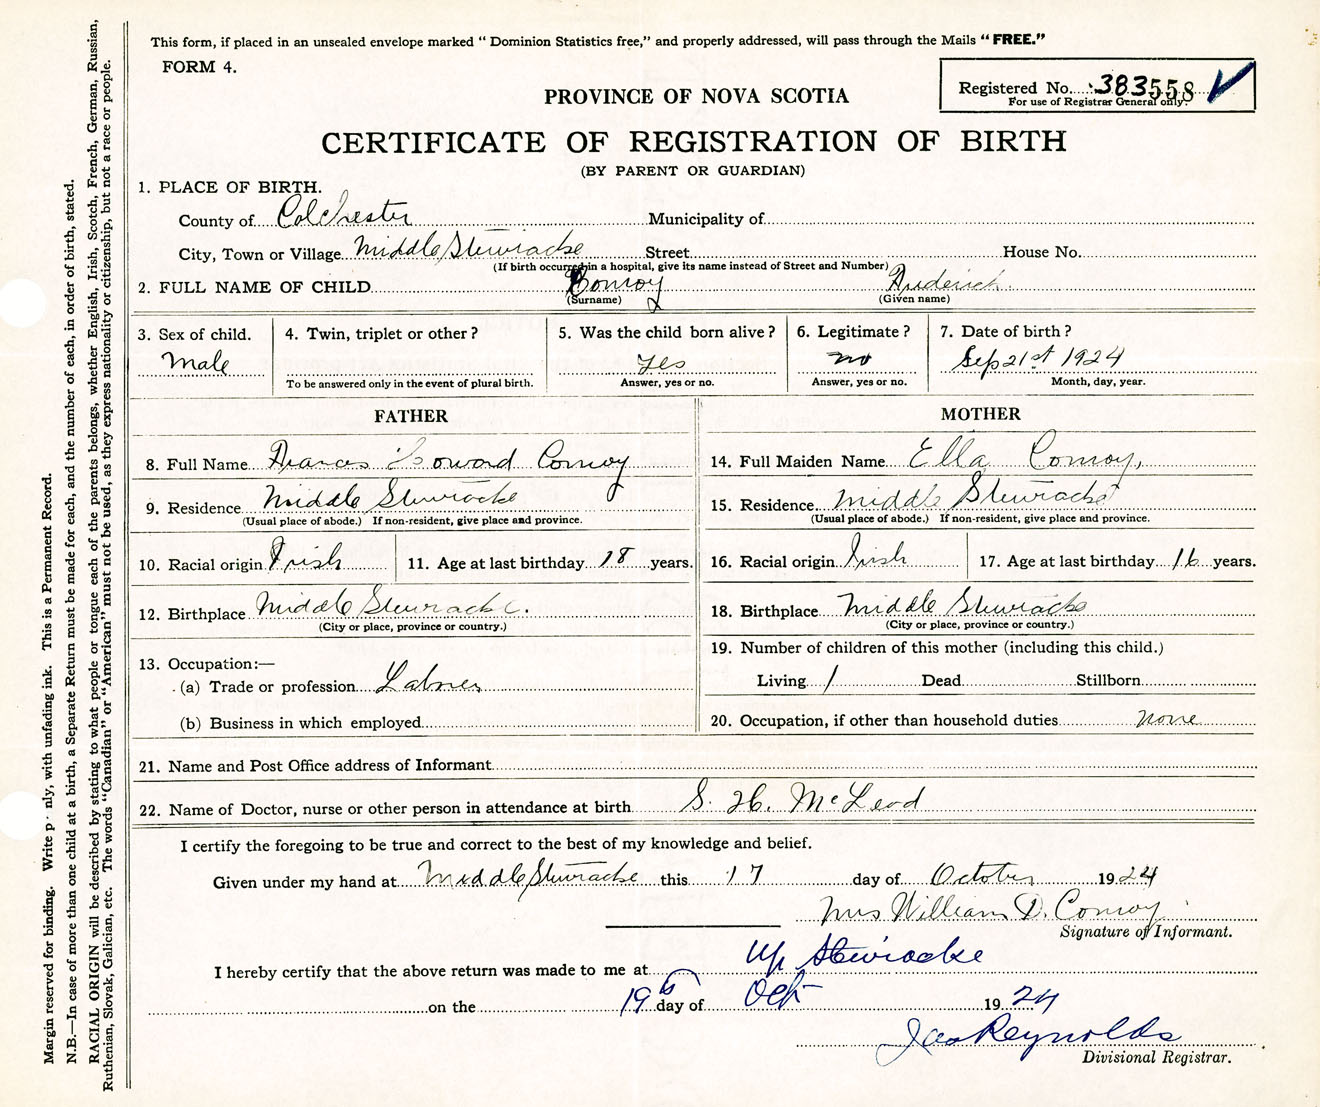 This form, if placed in an unsealed envelope marked “ Dominion Statistics free,” and properly addressed, will pass through the Mails “ FREE.”
FORM 4.
Registered No. 383558
For use of Registrar General only.
PROVINCE OF NOVA SCOTIA
CERTIFICATE OF REGISTRATION OF BIRTH
(BY PARENT OR GUARDIAN)
1. PLACE OF BIRTH.
County of Colchester Municipality of
City, Town or Village Middle Stewiacke Street House No.
(If birth occurred in a hospital, give its name instead of Street and Number)
2. FULL NAME OF CHILD Conroy Frederick
(Surname) (Given name)
3. Sex of child. 4. Twin, triplet or other ? 5. Was the child born alive ? 6. Legitimate ? 7. Date of birth ?
Male yes no Sep 21st 1924
To be answered only in the event of plural birth. Answer, yes or no. Answer, yes or no. Month, day, year.
FATHER MOTHER
8. Full Name Conroy 14. Full Maiden Name Ella Conroy,
9. Residence Middle Stewiacke 15. Residence Middle Stewiacke
(Usual place of abode.) If non-resident, give place and province. (Usual place of abode.) If non-resident, give place and province.
10. Racial origin Irish 11. Age at last birthday 18 years. 16. Racial origin Irish 17. Age at last birthday 16 years.
12. Birthplace Middle Stewiacke. 18. Birthplace Middle Stewiacke
(City or place, province or country.) (City or place, province or country.)
13. Occupation:— 19. Number of children of this mother (including this child.)
(a) Trade or profession Labrer Living 1 Dead Stillborn
(b) Business in which employed 20. Occupation, if other than household duties none
21. Name and Post Office address of Informant
22. Name of Doctor, nurse or other person in attendance at birth S. H. McLeod
I certify the foregoing to be true and correct to the best of my knowledge and belief.
Given under my hand at Middle Stewiacke this 17 day of October 1924
Mrs William D. Conroy
Signature of Informant.
I hereby certify that the above return was made to me at Up Stewiacke
on the 19th day of Oct 1924
Jas Reynolds
Divisional Registrar.
Margin reserved for binding. Write p nly, with unfading ink. This is a Permanent Record.
N.B.—In case of more than one child at a birth, a Separate Return must be made for each, and the number of each, in order of birth, stated.
RACIAL ORIGIN will be described by stating to what people or tongue each of the parents belongs, whether English, Irish, Scotch, French, German, Russian,
Ruthenian, Slovak, Galician, etc. The words “Canadian” or “American” must not be used, as they express nationality or citizenship, but not a race or people.